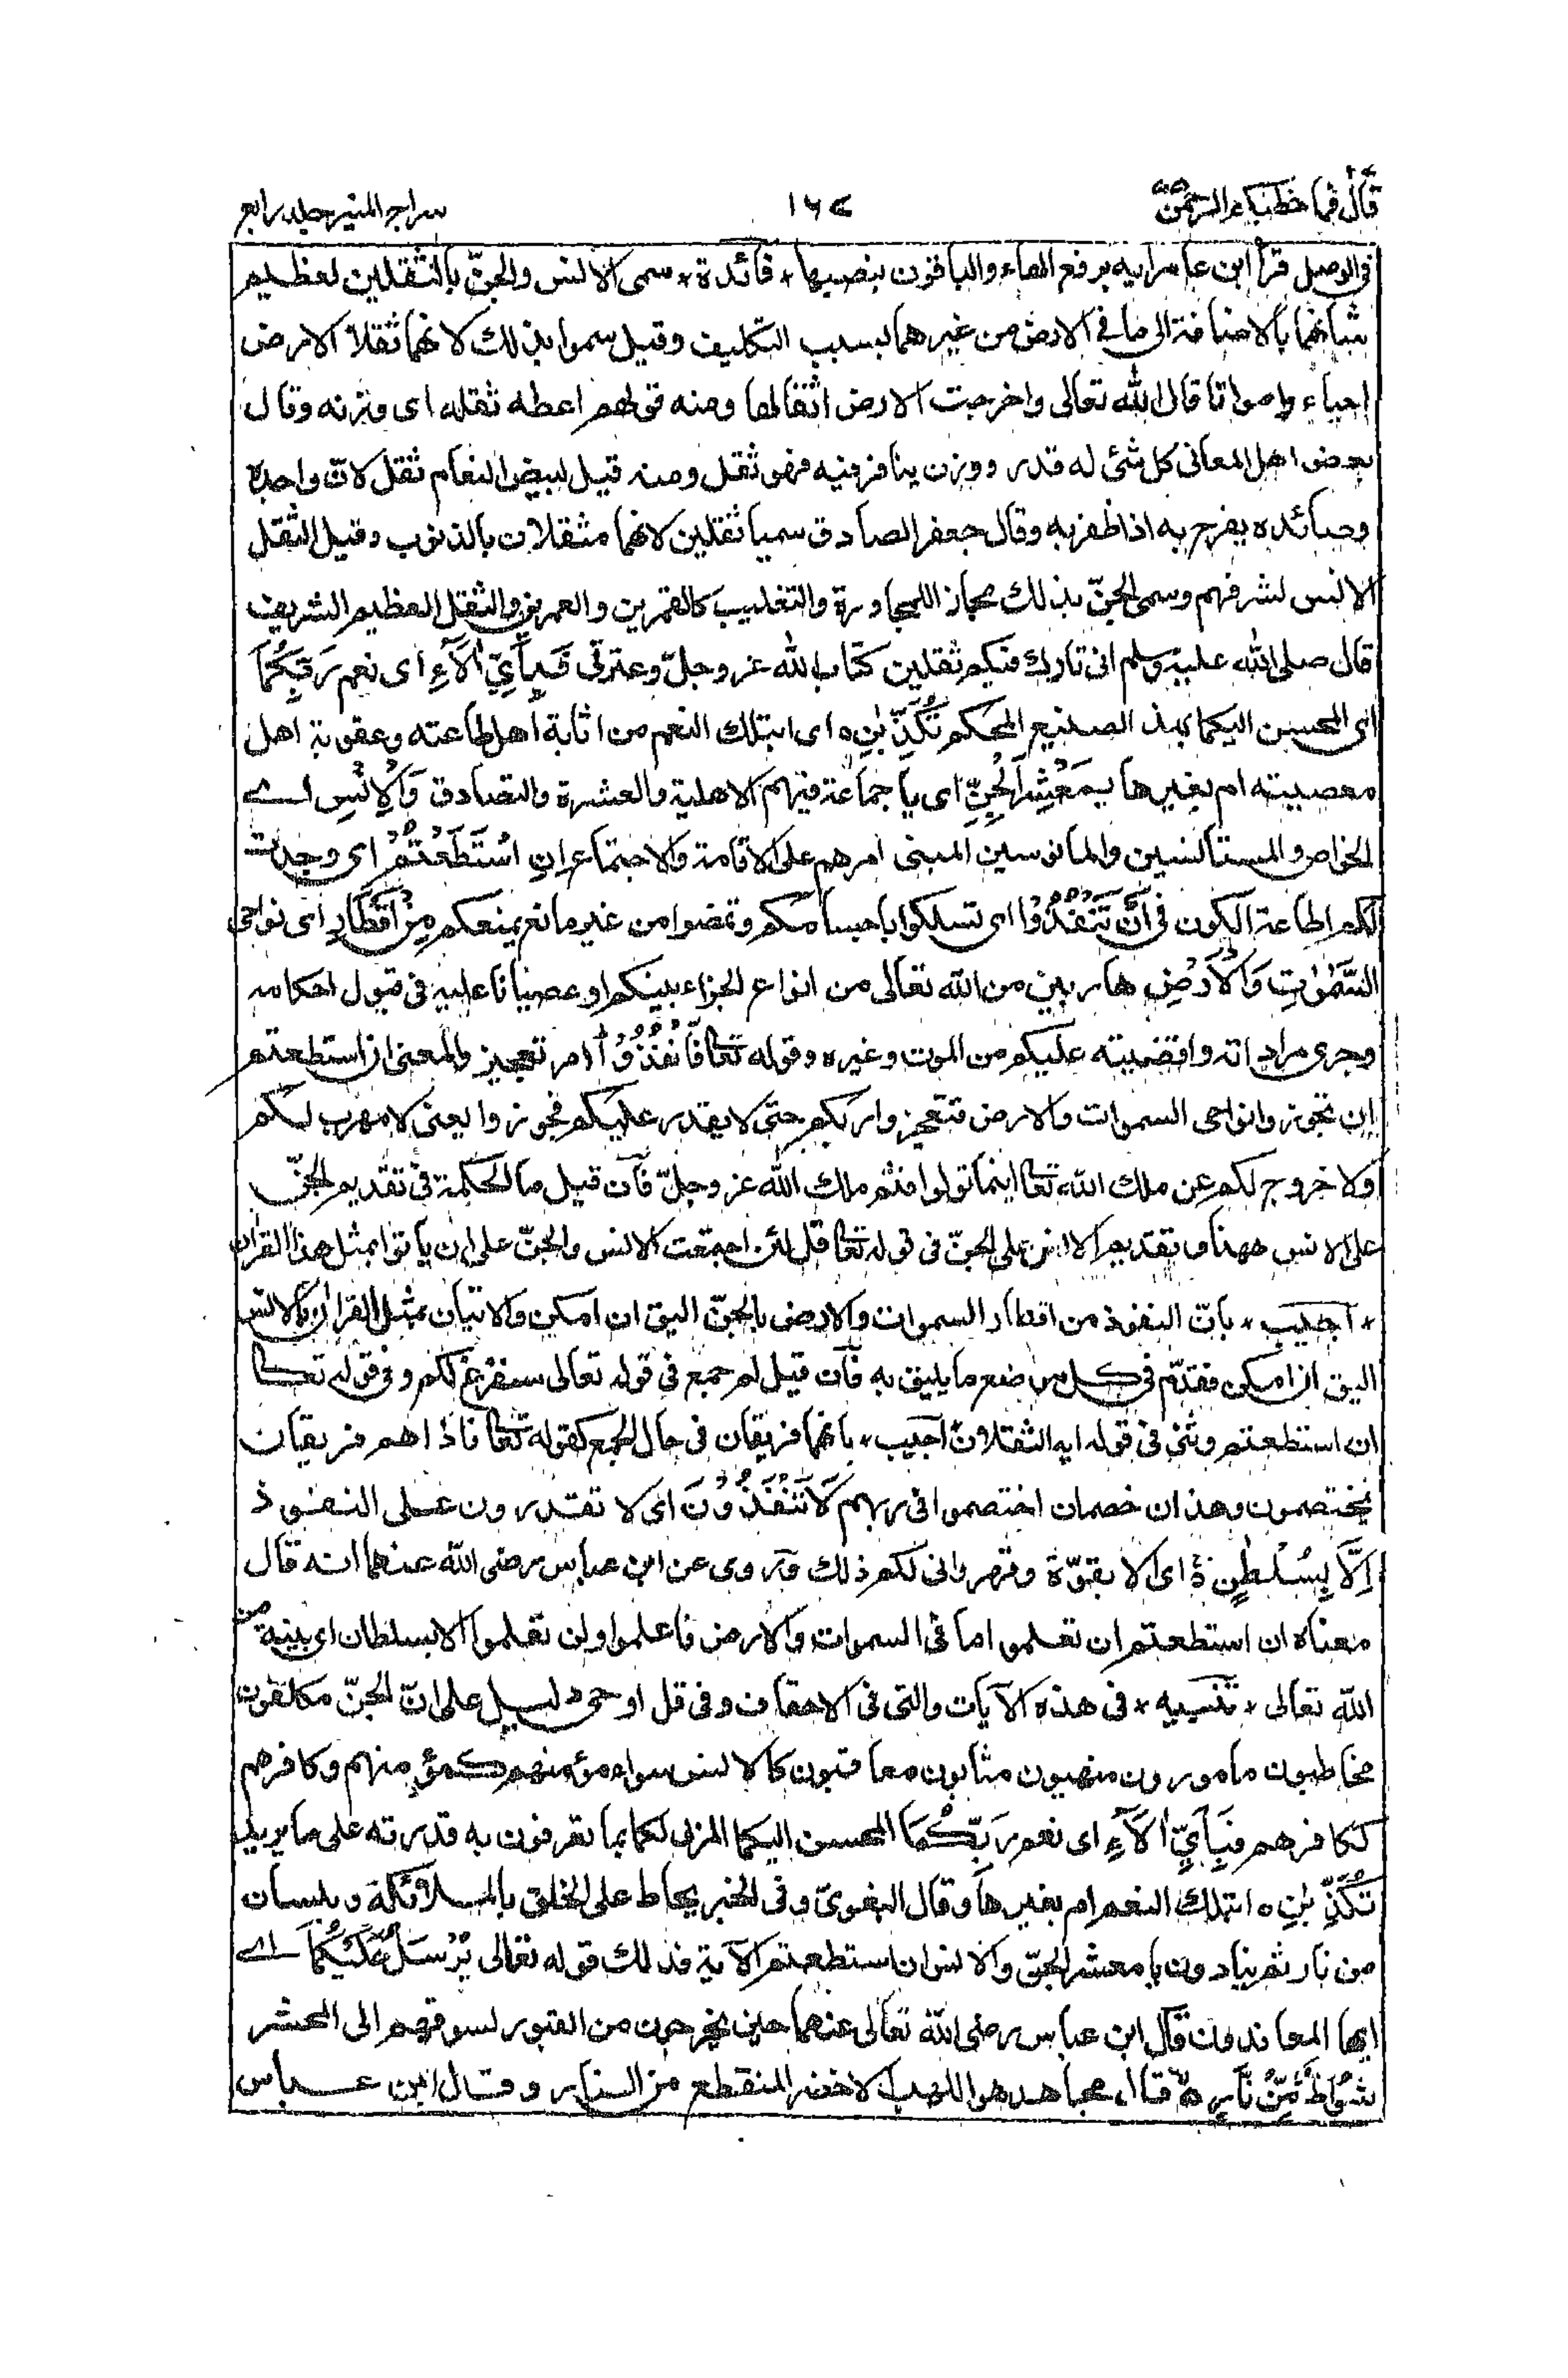 قال فما خطبكم الرحمن ١٦٤ سراج المنير جلد رابع
فى الوصل قرأ ابن عامر ايه برفع الهاء والباقون بنصبها * فائدة * سمى الانس والجنّ بالثقلين لعظيم
شانهما بالاضافة الى ما فى الارض من غيرهما بسبب التكليف وقيل سموا بذلك لانهما ثقلا الارض
احياء وامواتا قال الله تعالى واخرجت الارض اثقالها ومنه قولهم اعطه ثقله اى وزنه وقال
بعض اهل المعانى كل شئ له قدر ووزن ينافس فيه فهو ثقل ومنه قيل لبيض النعام ثقل لانّ واجده
وصائده يفرح به اذا ظفر به وقال جعفر الصادق سميا ثقلين لانهما مثقلان بالذنوب وقيل الثقل
الانس لشرفهم وسمى الجنّ بذلك مجاز اللمجاورة والتغليب كالقمرين والعمرين والثقل العظيم الشريف
قال صلى الله عليه وسلم انى تارك فيكم ثقلين كتاب الله عز وجلّ وعترتى فَبِأَيِّ اٰلَآءِ اى نعم رَبِّكُمَا
اى المحسن اليكما بهذ الصنيع المحكم تُكَذِّبٰنِ ه اى ابتلك النعم من اثابة اهل طاعته وعقوبة اهل
معصيته ام بغيرها يٰمَعْشَرَ الْجِنِّ اى يا جماعة فيهم الاهلية والعشرة والتصادق وَالْاِنْسِ اے
الخواص والمستأنسين والمانوسين المبنى امرهم على الاقامة والاجتماع اِنِ اسْتَطَعْتُمْ اى وجدت
لكم طاعة الكون فى اَنْ تَنْفُذُوْا اى تسلكوا باجسامكم وتمضوا من غير مانع يمنعكم مِنْ اَقْطَارِ اى نواحى
السَّمٰوٰتِ وَالْاَرْضِ هاربين من الله تعالى من انواع الجزاء بينكم او عصيانا عليه فى قبول احكامه
وجرى مراداته واقضيته عليكم من الموت وغيره وقوله تعا فَانْفُذُوْا امر تعجيز والمعنى ان استطعتم
ان تجوزوا نواحى السموات والارض فتعجزوا ربكم حتى لا يقدر عليكم فجوزوا يعنى لا مهرب لكم
ولا خروج لكم عن ملك الله تعا اينما تولوا فثم ملك الله عز وجلّ فان قيل ما الحكمة فى تقديم الجنّ
على الانس ههنا وتقديم الانس على الجنّ فى قوله تعا قل لئن اجتمعت الانس والجنّ على ان يأتوا بمثل هذا القران
* اجيب * بانّ النفوذ من اقطار السموات والارض بالجنّ اليق ان امكن والاتيان بمثل القران بالانس
اليق ان امكن فقدّم فى كل موضع ما يليق به فان قيل لم جمع فى قوله تعالى سنفرغ لكم وفى قوله تعا
ان استطعتم وثنى فى قوله ايه الثقلان اجيب * بانهما فريقان فى حال الجمع كقوله تعا فاذا هم فريقان
يختصمون وهذان خصمان اختصموا فى ربهم لَا تَنْفُذُوْنَ اى لا تقدرون على النفوذ
اِلَّا بِسُلْطٰنٍ ه اى الا بقوّة وقهر وانى لكم ذلك وروى عن ابن عباس رضى الله عنهما انه قال
معناه ان استطعتم ان تعلموا ما فى السموات والارض فاعلموا ولن تعلموا الا بسلطان اى بينة من
الله تعالى * تنبيه * فى هذه الآيات والتى فى الاحقاف وفى قل اوحى دليل على انّ الجنّ مكلفون
مخاطبون مامورون منهيون مثابون معاقبون كالانس سواء مؤمنهم كمؤمنهم وكافرهم
ككافرهم فَبِأَيِّ اٰلَآءِ اى نعم رَبِّكُمَا المحسن اليكما المربى لكما بما تعرفون به قدرته على ما يريد
تُكَذِّبٰنِ ه ابتلك النعم ام بغيرها وقال البغوىّ وفى الخبر يحاط على الخلق بالملائكة وبلسان
من نار ثم ينادون يا معشر الجنّ والانس ان استطعتم الآية فذلك قوله تعالى يُرْسَلُ عَلَيْكُمَا اے
ايها المعاندون قال ابن عباس رضى الله تعالى عنهما حين يخرجون من القبور لسوقهم الى المحشر
شُوَاظٌ مِّنْ نَّارٍ ه قال مجاهد هو اللهب الاخضر المنقطع من النار وقال ابن عباس